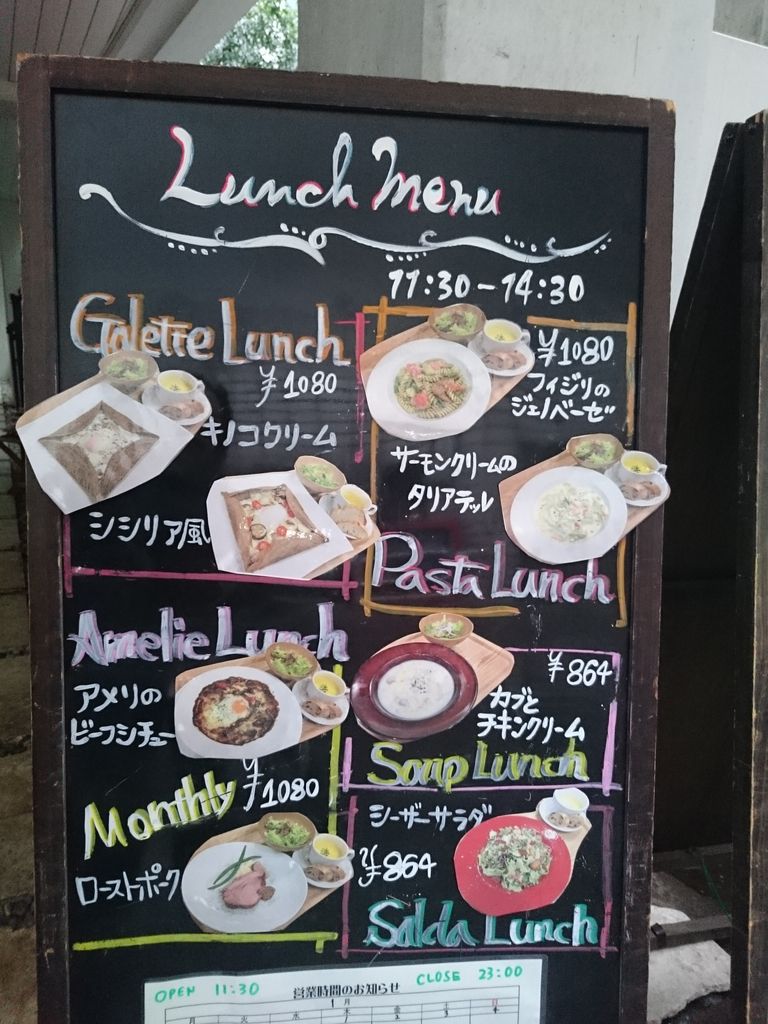 Lunch Menu
11:30-14:30
Galette Lunch
¥1080
キノコクリーム
シシリア風
¥1080
フィジリの
ジェノベーゼ
サーモンクリームの
タリアテッレ
Pasta Lunch
Amelie Lunch
アメリの
ビーフシチュー
¥1080
Monthly
ローストポーク
¥864
カブと
チキンクリーム
Soup Lunch
シーザーサラダ
¥864
Salda Lunch
OPEN 11:30 営業時間のお知らせ CLOSE 23:00
1月
月 火 水 木 金 土 日
1 2 3 4